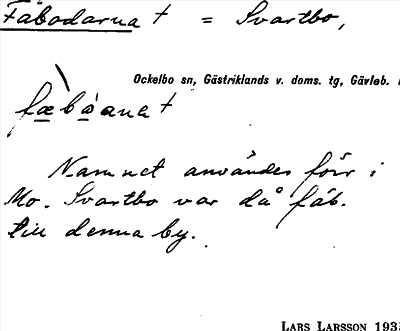 Fäbodarna † = Svartbo,
Ockelbo sn, Gästriklands v. doms. tg, Gävleb.
fæbòana †
Namnet användes förr i
Mo. Svartbo var då fäb.
till denna by.
LARS LARSSON 193